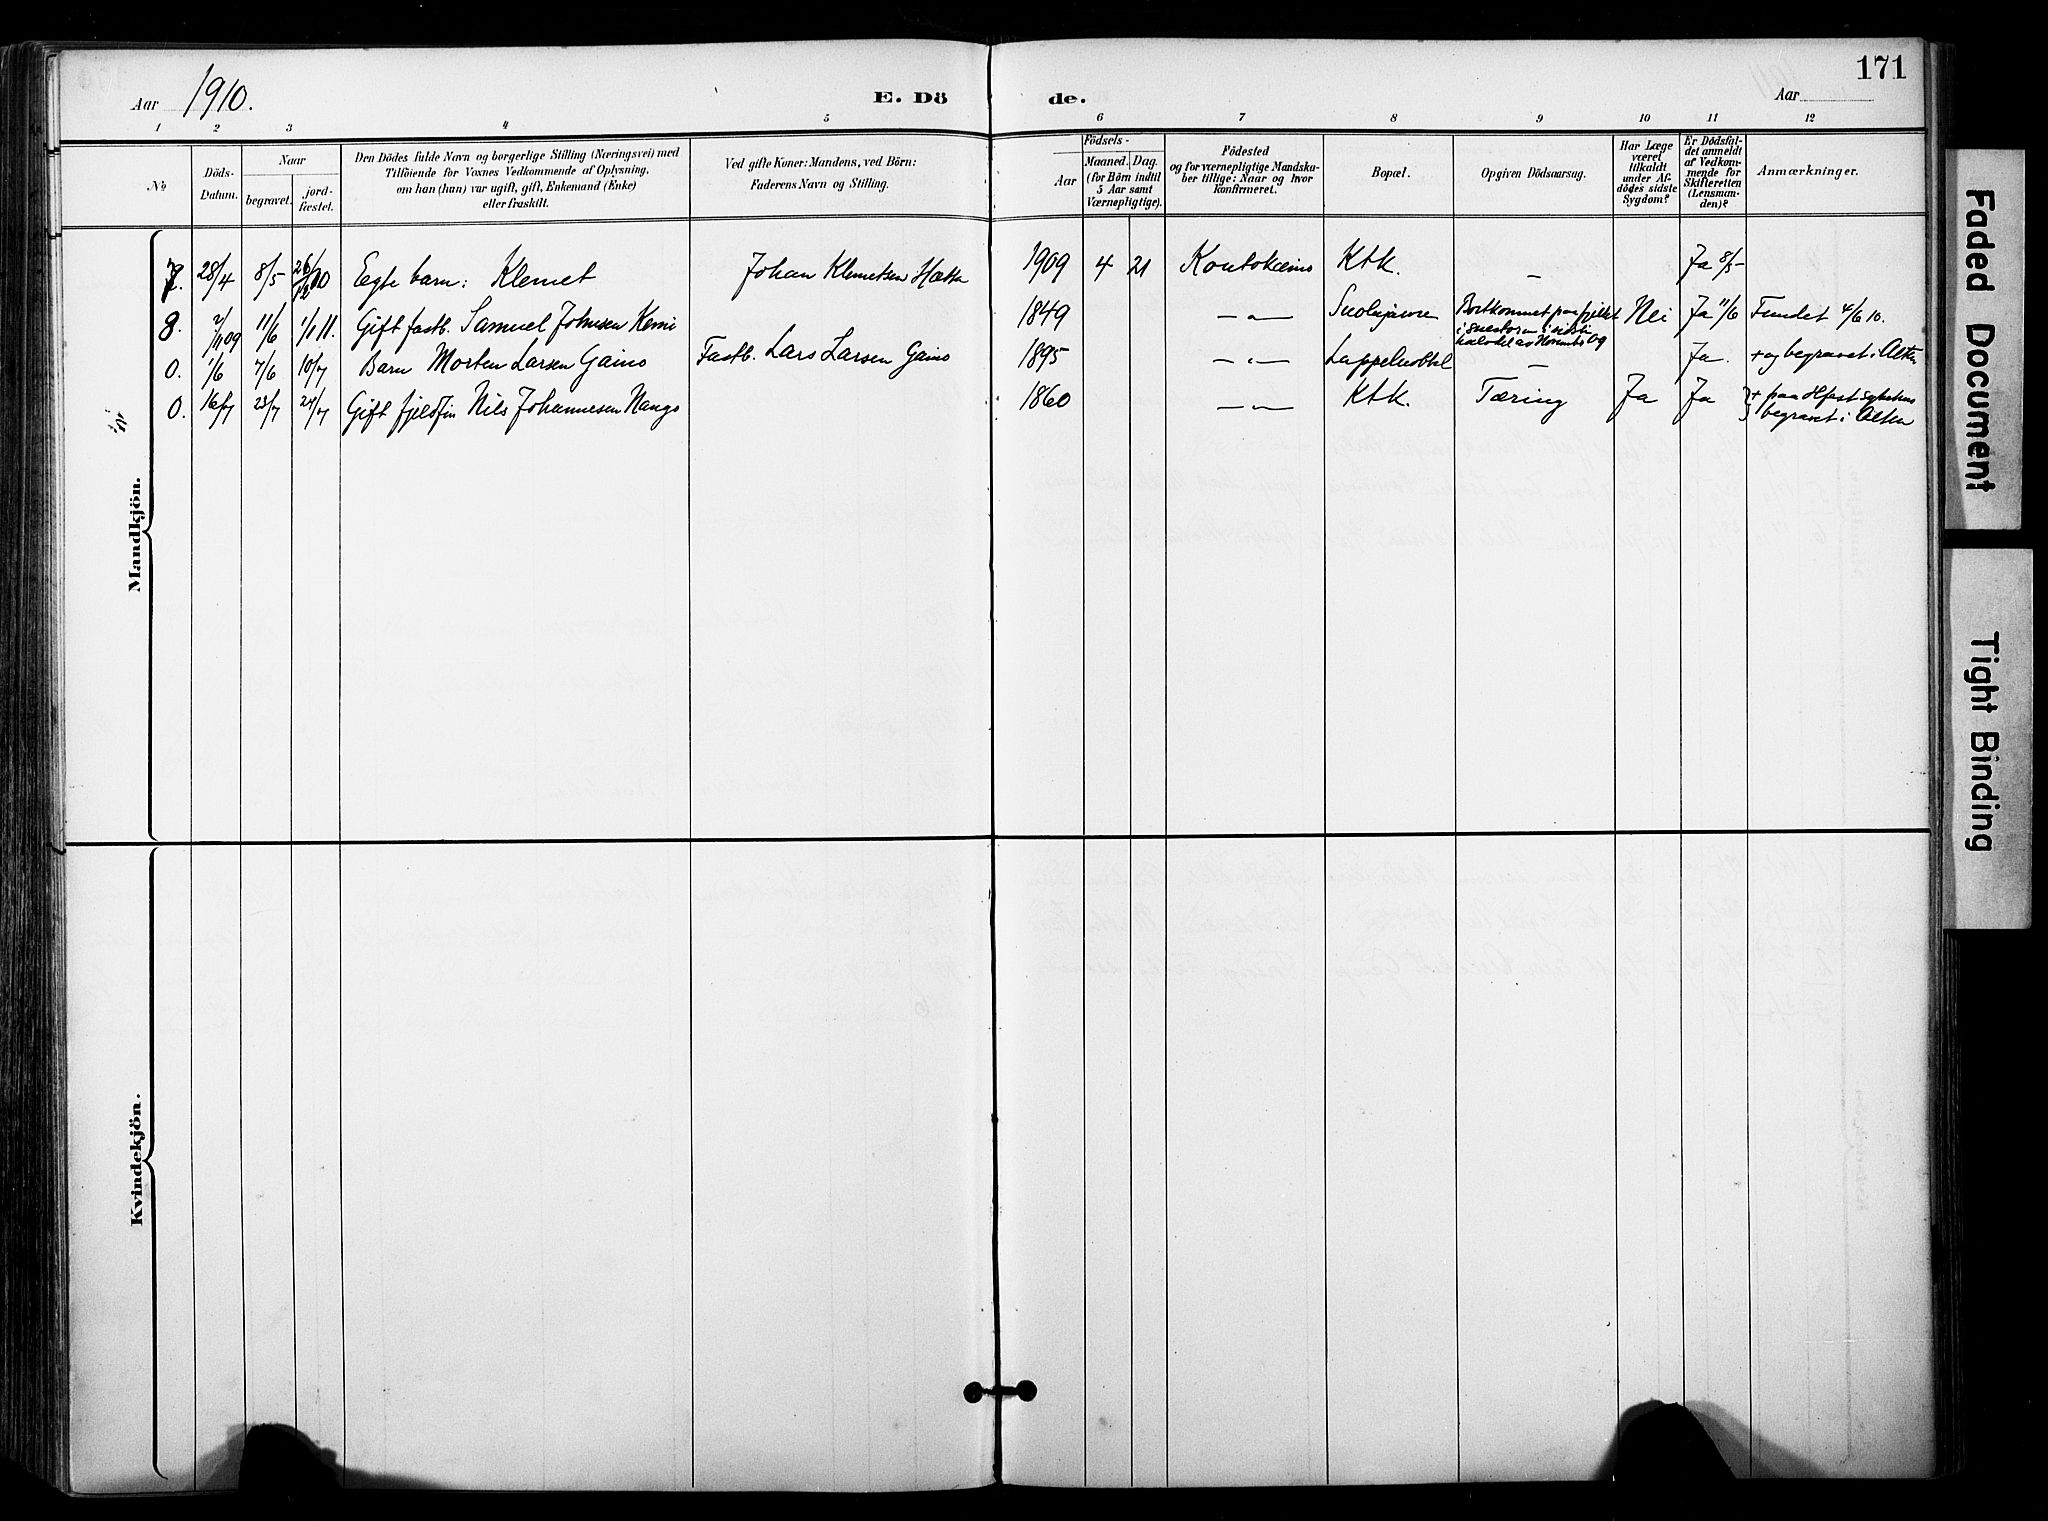 171
Aar 1910.
E. Dö de.
Aar
1 2 3 4 5 6 7 8 9 10 11 12
No
Döds-Datum.
Naar
begravet.
jord-fæstet.
Den Dödes fulde Navn og borgerlige Stilling (Næringsvei) med
Tilföiende for Voxnes Vedkommende af Oplysning,
om han (hun) var ugift, gift, Enkemand (Enke)
eller fraskilt.
Ved gifte Koner: Mandens, ved Börn:
Faderens Navn og Stilling.
Födsels-
Aar
Maaned. Dag.
(for Börn indtil
5 Aar samt
Værnepligtige).
Födested
og for værnepligtige Mandska-
ber tillige: Naar og hvor
konfirmeret.
Bopæl.
Opgiven Dödsaarsag.
Har Læge
været
tilkaldt
under Af-
dödes sidste
Sygdom?
Er Dödsfal-
det anmeldt
af Vedkom-
mende for
Skifteretten
(Lensman-
den)?
Anmærkninger.
7. 28/4 8/5 26/12 10 Egte barn: Klemet Johan Klemetsen Hætta 1909 4 21 Koutokeino Ktk. — Ja 8/5-
8. 2/11 09 11/6 1/1 11. Gift fastb. Samuel Johnsen Kemi 1849 —"— Suolojavre Bortkommet paa fjeldet
i snestorm i sidste
halvdel av Novembr 09 Nei Ja 11/6 Fundet 4/6 10.
0. 1/6 7/6 10/7 Barn Morten Larsen Gaino Fastb. Lars Larsen Gaino 1895 —"— Lappoluobbal — Ja. + og begravet i Alten
0. 16/7 23/7 24/7 Gift fjeldfin Nils Johannesen Nango 1860 —"— Ktk. Tæring Ja Ja + paa sykehus
begravet i Alten
Mandkjön.
Kvindekjön.
Faded Document
Tight Binding